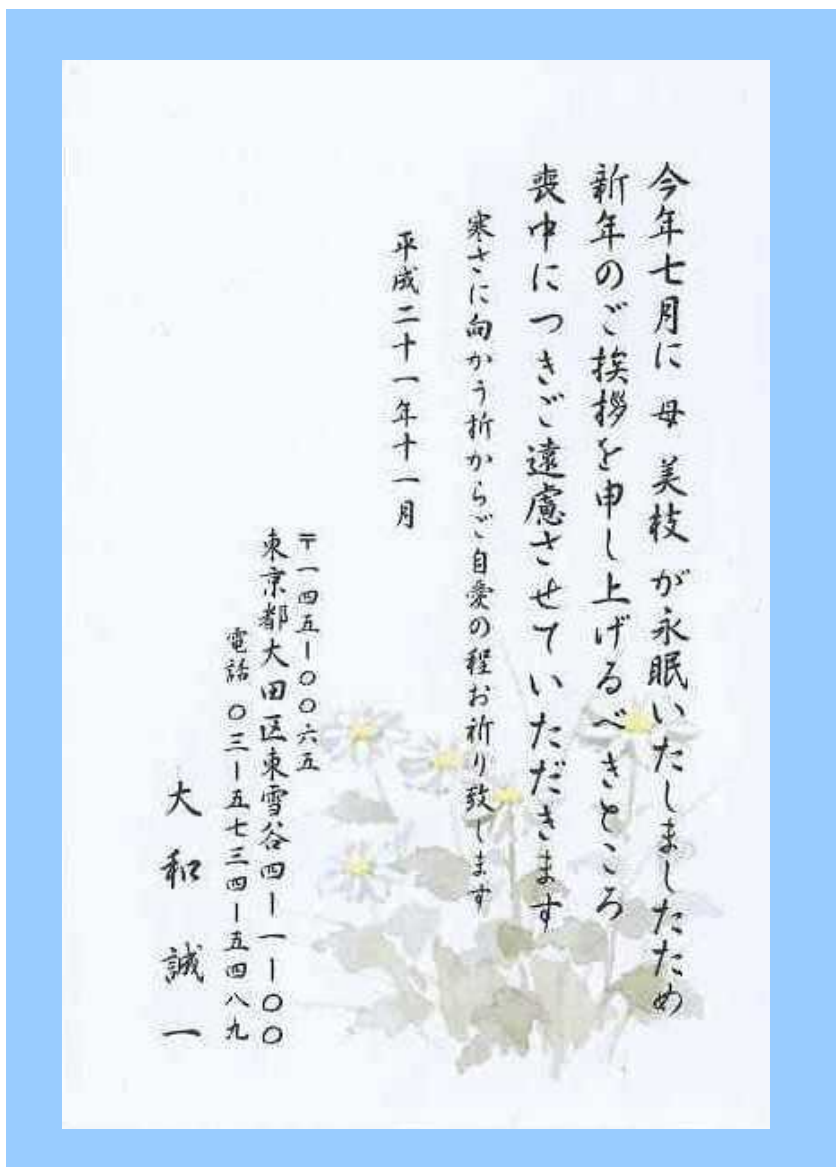 今年七月に 母 美枝 が永眠いたしましたため
新年のご挨拶を申し上げるべきところ
喪中につきご遠慮させていただきます
寒さに向かう折からご自愛の程お祈り致します
平成二十一年十一月
〒一四五ー〇〇六五
東京都大田区東雪谷四ー一ー〇〇
電話 〇三ー五七三四ー五四八九
大和誠一